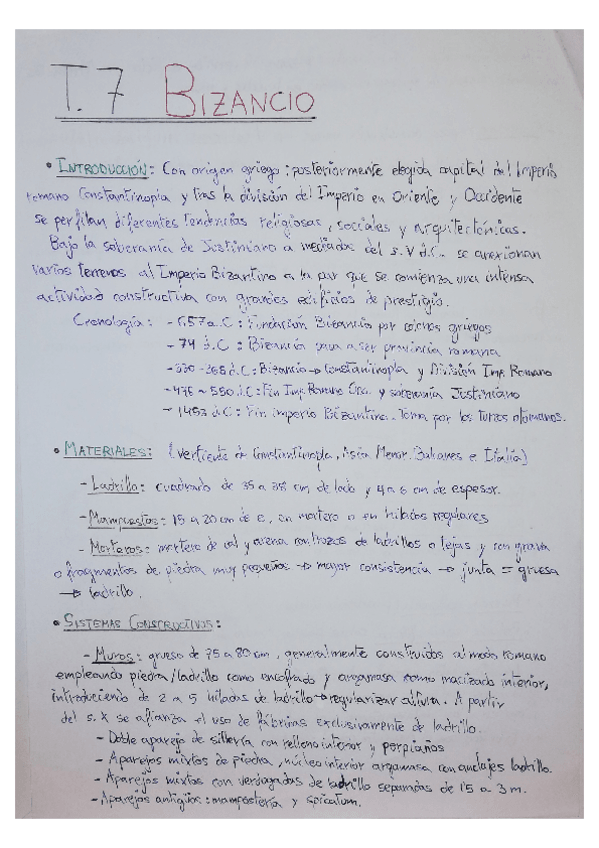 T. 7 BIZANCIO
• INTRODUCCIÓN: Con origen griego: posteriormente elegida capital del Imperio
romano Constantinopla y tras la división del Imperio en Oriente y Occidente
se perfilan diferentes tendencias religiosas, sociales y arquitectónicas.
Bajo la soberanía de Justiniano a mediados del s. V d.C. se anexionan
varios terrenos al Imperio Bizantino a la par que se comienza una intensa
actividad constructiva con grandes edificios de prestigio.
Cronología: - 657 a.C: Fundación Bizancio por colonos griegos
- 74 d.C: Bizancio pasa a ser provincia romana
- 330 - 395 d.C: Bizancio → Constantinopla y División Imp. Romano
- 476 ~ 550 d.C: Fin Imp. Romano Occ. y soberanía Justiniano
- 1453 d.C: Fin imperio Bizantino. Toma por los turcos otomanos.
• MATERIALES: (vertiente de Constantinopla, Asia Menor, Balcanes e Italia)
- Ladrillo: cuadrado de 35 a 38 cm de lado y 4 a 6 cm de espesor.
- Mampuestos: 15 a 20 cm de e, en mortero o en hiladas regulares
- Morteros: mortero de cal y arena con trozos de ladrillos o tejas y con grava
o fragmentos de piedra muy pequeños → mayor consistencia → junta = gruesa
→ ladrillo.
• SISTEMAS CONSCRUCTIVOS:
- Muros: grueso de 75 a 80 cm, generalmente construidos al modo romano
empleando piedra/ladrillo como encofrado y argamasa como macizado interior,
introduciendo de 2 a 5 hiladas de ladrillo → regularizar altura. A partir
del s. X se afianza el uso de fábricas exclusivamente de ladrillo.
- Doble aparejo de sillería con relleno interior y perpiaños
- Aparejos mixtos de piedra, núcleo interior argamasa con anclajes ladrillo.
- Aparejos mixtos con verdugadas de ladrillo separadas de 1'5 a 3 m.
- Aparejos antiguos: mampostería y spicatum.